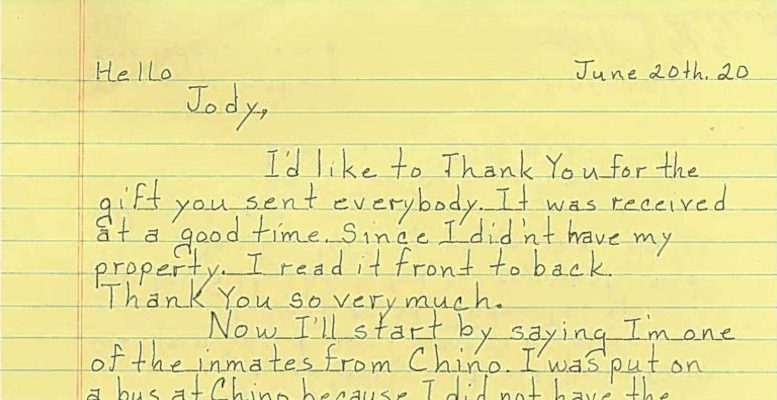 Hello June 20th. 20
Jody,
I'd like to Thank You for the
gift you sent everybody. It was received
at a good time. Since I didn't have my
property. I read it front to back.
Thank You so very much.
Now I'll start by saying I'm one
of the inmates from Chino. I was put on
a bus at Chino because I did not have the